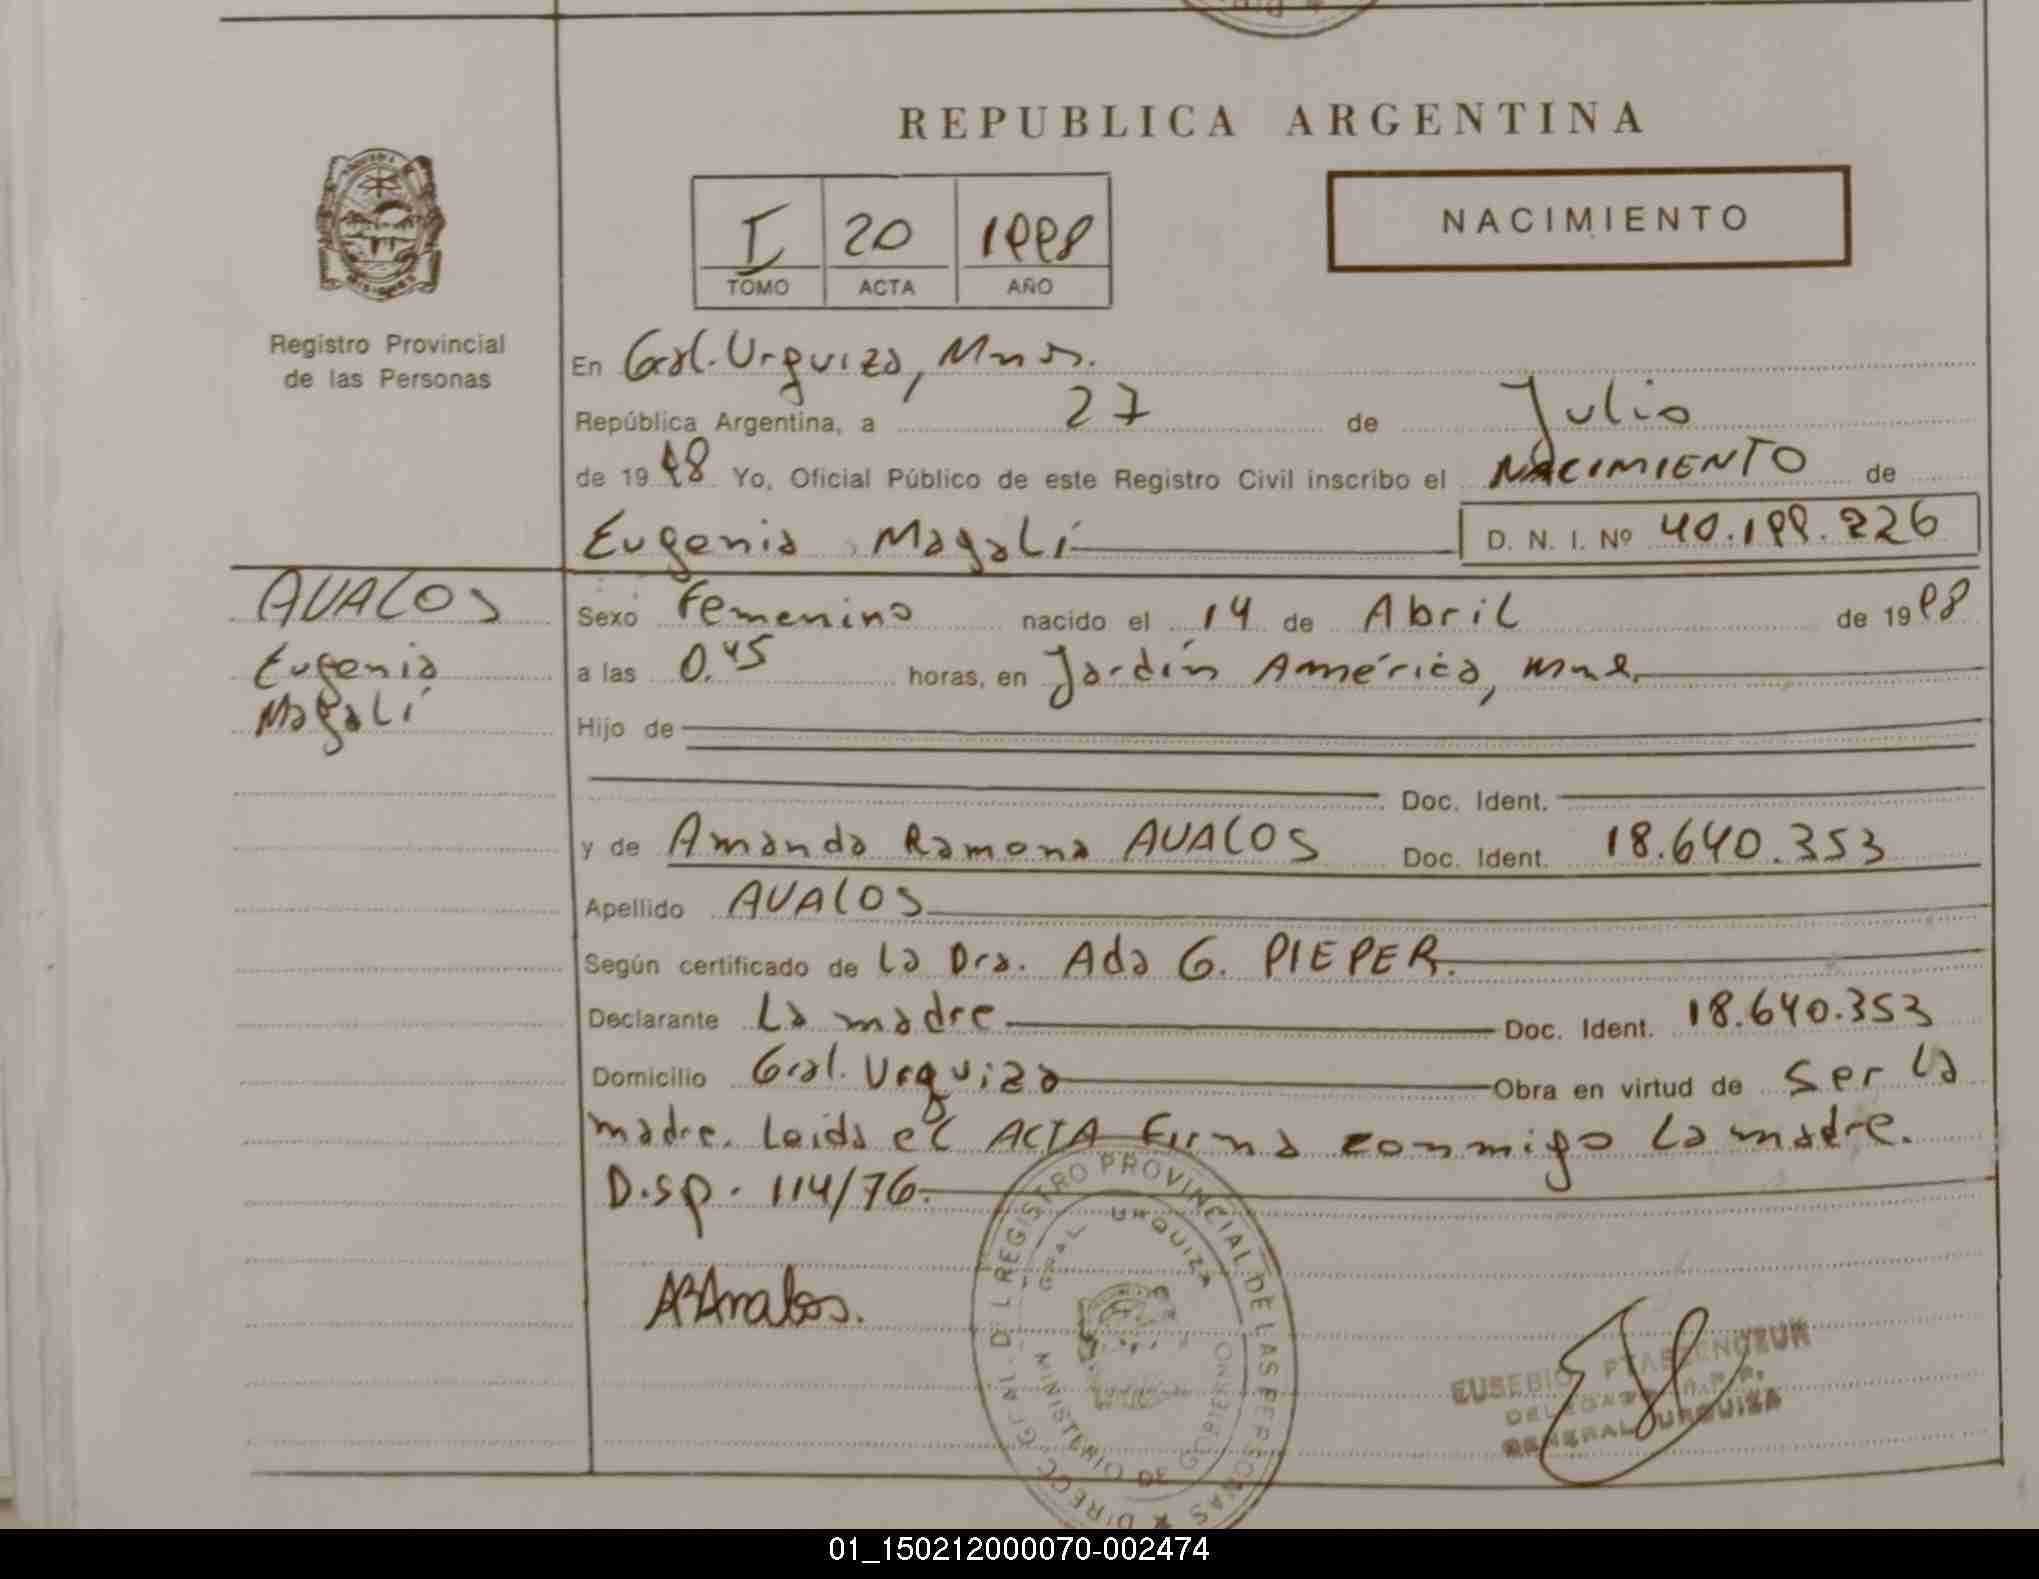 REPUBLICA ARGENTINA
NACIMIENTO
I 20 1998
TOMO ACTA AÑO
Registro Provincial
de las Personas
En Gral. Urquiza, Mnes.
República Argentina, a 27 de Julio
de 1998 Yo, Oficial Público de este Registro Civil inscribo el NACIMIENTO de
Eugenia Magalí D. N. I. Nº 40.199.226
AVALOS
Eugenia
Magalí
Sexo Femenino nacido el 14 de Abril de 1998
a las 0.45 horas, en Jardín América, Mnes.
Hijo de
Doc. Ident.
y de Amanda Ramona AVALOS Doc. Ident. 18.640.353
Apellido AVALOS
Según certificado de La Dra. Ada G. PIEPER.
Declarante La madre Doc. Ident. 18.640.353
Domicilio Gral. Urquiza Obra en virtud de ser la
madre. Leida el ACTA Firma conmigo la madre.
Disp. 114/76.
ARAvalos.
DIRECC. GRAL. DEL REGISTRO PROVINCIAL DE LAS PERSONAS
GRAL URQUIZA
MINISTERIO DE GOBIERNO
EUSEBIO
DELEGADO R.P.P.
GENERAL URQUIZA
01_150212000070-002474